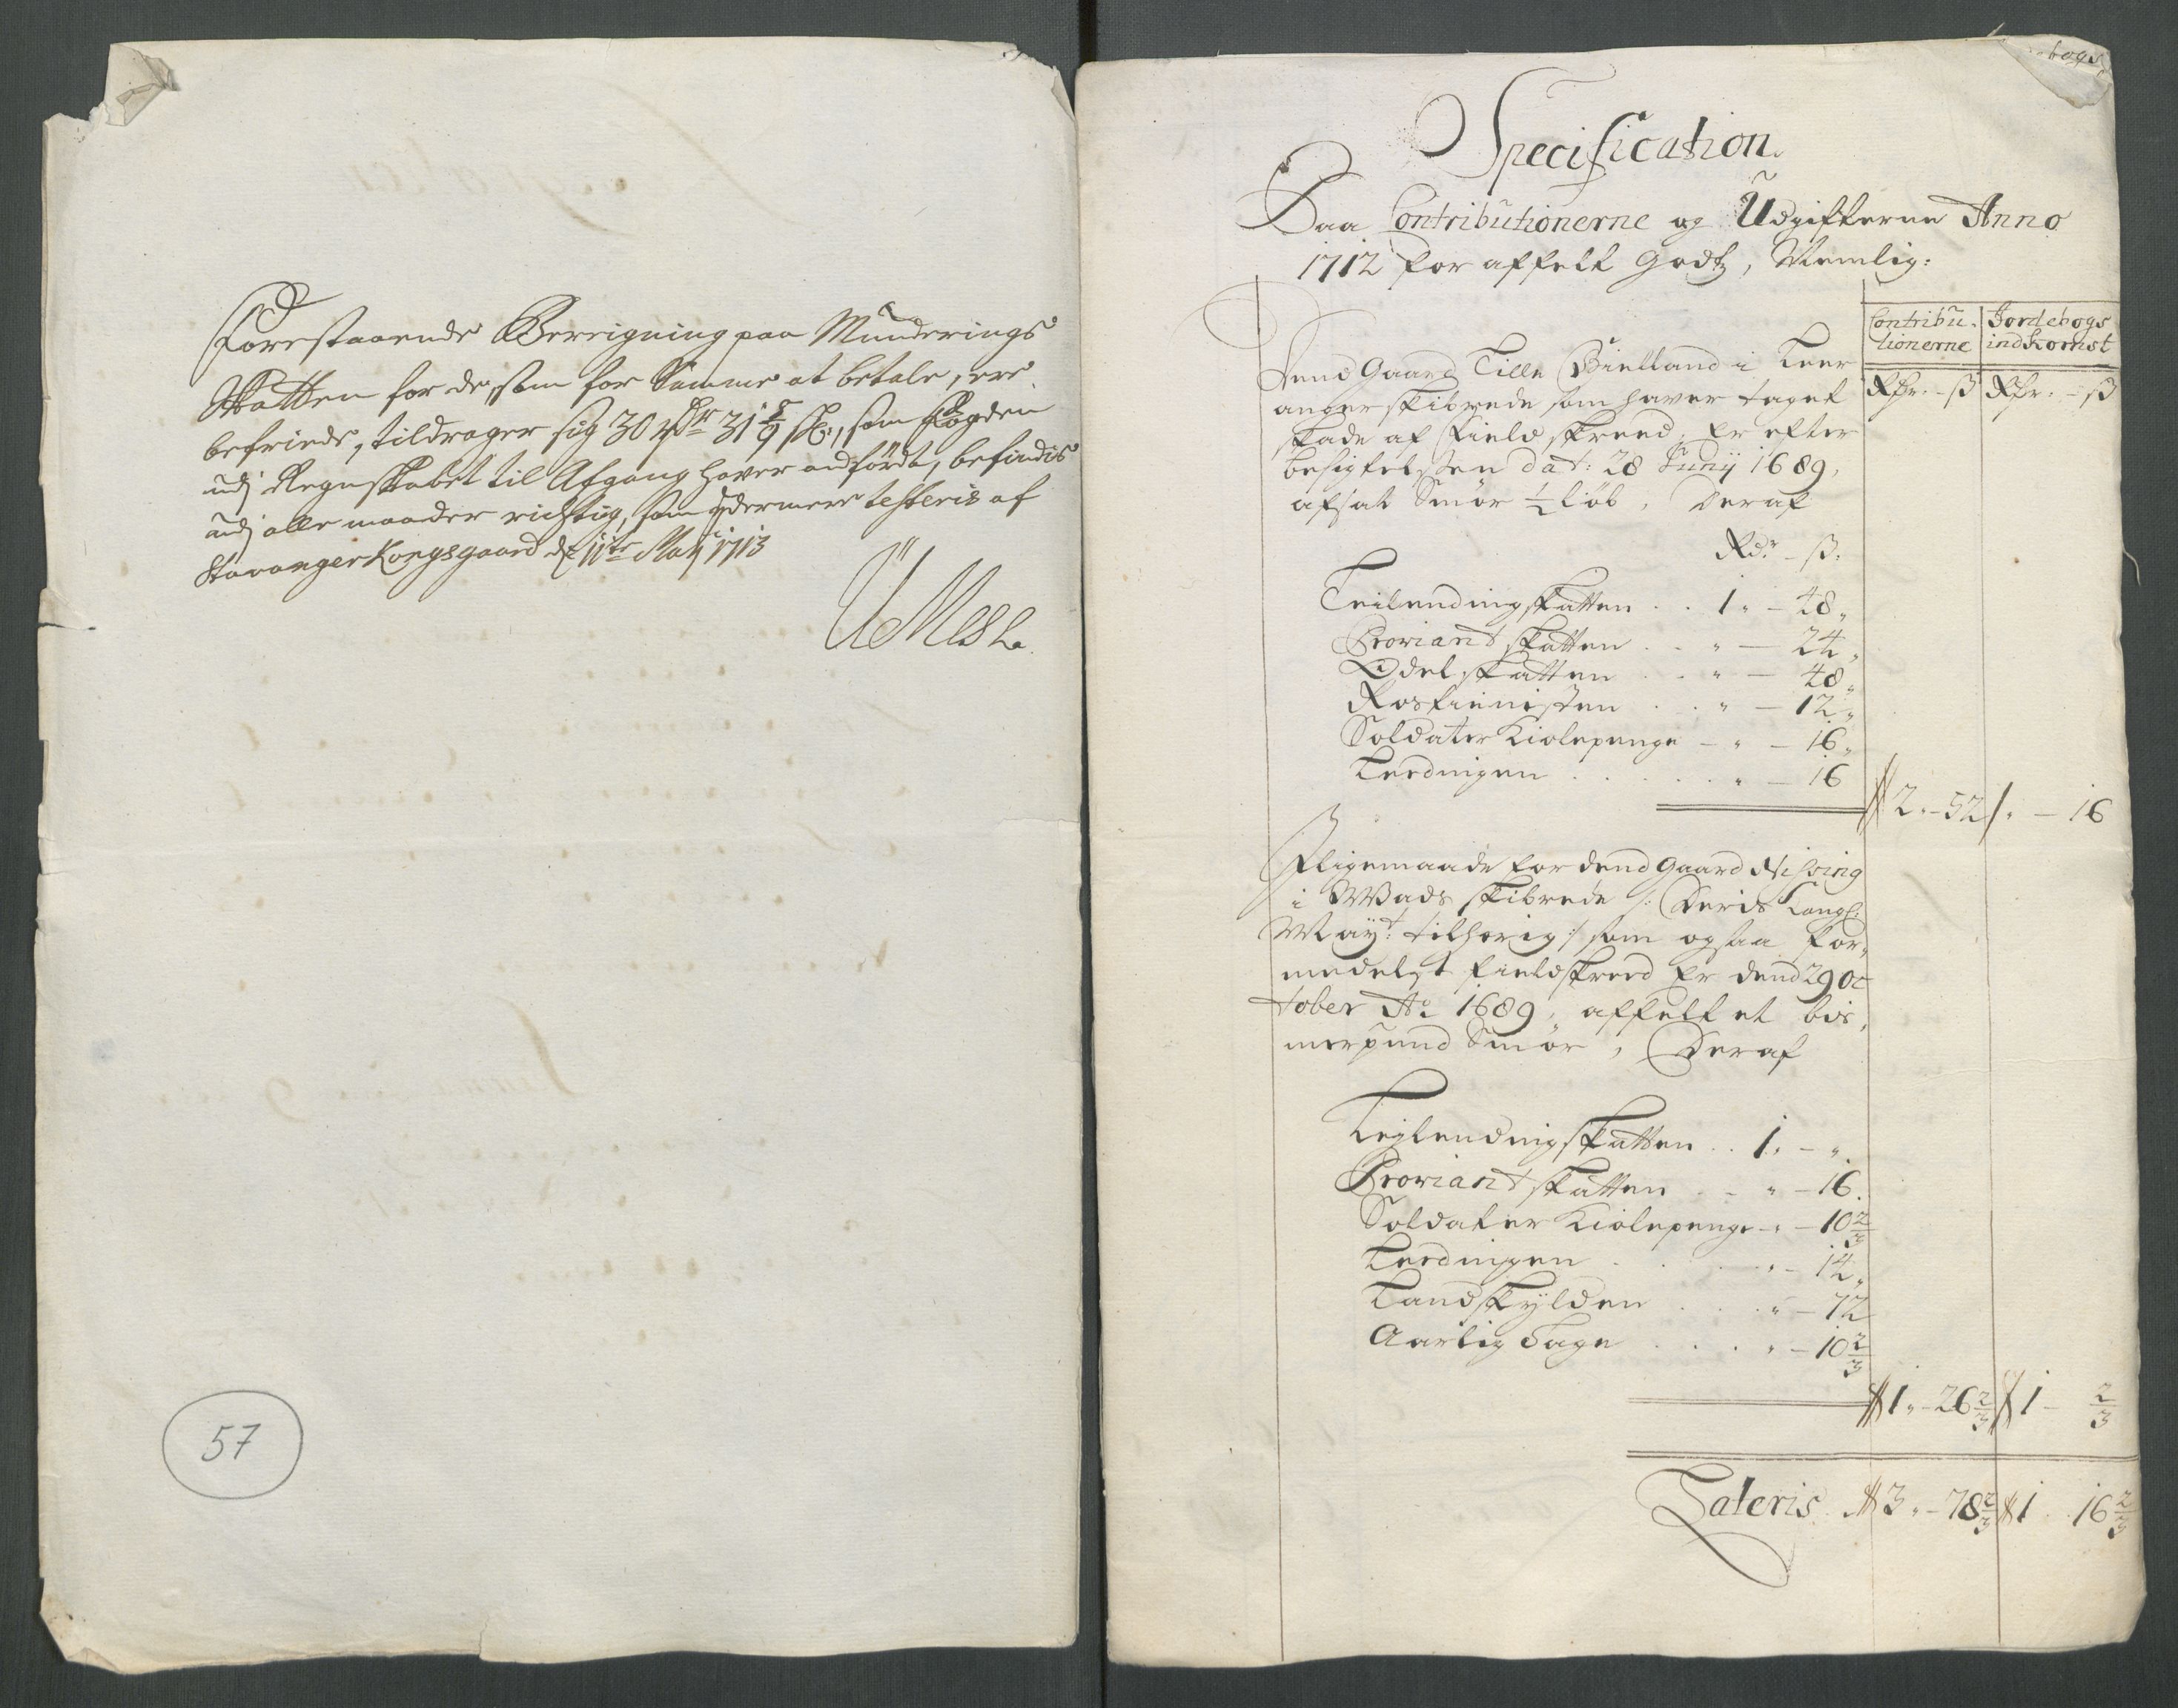 Forestaaende Bereigning paa Munderings
Skatten for de, som for Samme at betale, ere
befriede, tildrager sig 30 rdr 31 8/9 s:, som Fogden
udj Regnskabet til Afgang haver andført, befindis
udj alle maader richtig, som ydermere testeris af
Stavanger Kongsgaard d: 11te Maÿ 1713
57
Specification
Paa Contributionerne og Udgifterne Anno
1712 for affelt Godtz, Nemlig:
Contribu- Jordebogs
tionerne indkomst
Rdr. - ß Rdr. - ß
Dend Gaard Lille Gietland i Leer
anger skibrede som haver taget
skade af Field skreed, Er efter
besigtelsen dat: 28 Junÿ 1689,
afsat Smør 1/2 løb, Deraf
Rdr - ß:
Leilendingskatten . . 1 " - 48 "
Proviant skatten . . " - 24 "
Odelskatten . . " - 48 "
Rostienisten . . " - 12 "
Soldater Kiolepenge - " - 16 "
Leedingen . . . . " - 16
2 " - 52 " - 16
Iligemaade for dend Gaard
i Wads skibrede /: Deris Kongl:
Maÿt: tilhørig :/ som ogsaa for-
medelst fieldskreed Er dend 29 Oc
tober Ao 1689, affelt et bis-
merpund Smør, Deraf
Lejlendingskatten . . 1 " - "
Proviant skatten . . " - 16
Soldater Kiolepenge - " - 10 2/3
Leedingen . . . " - 14 "
Landskylden . . . " - 72
Aarlig Tage . . . " - 10 2/3
1 " - 26 2/3 1 - 2/3
Lateris 3 " - 78 2/3 1 . 16 2/3